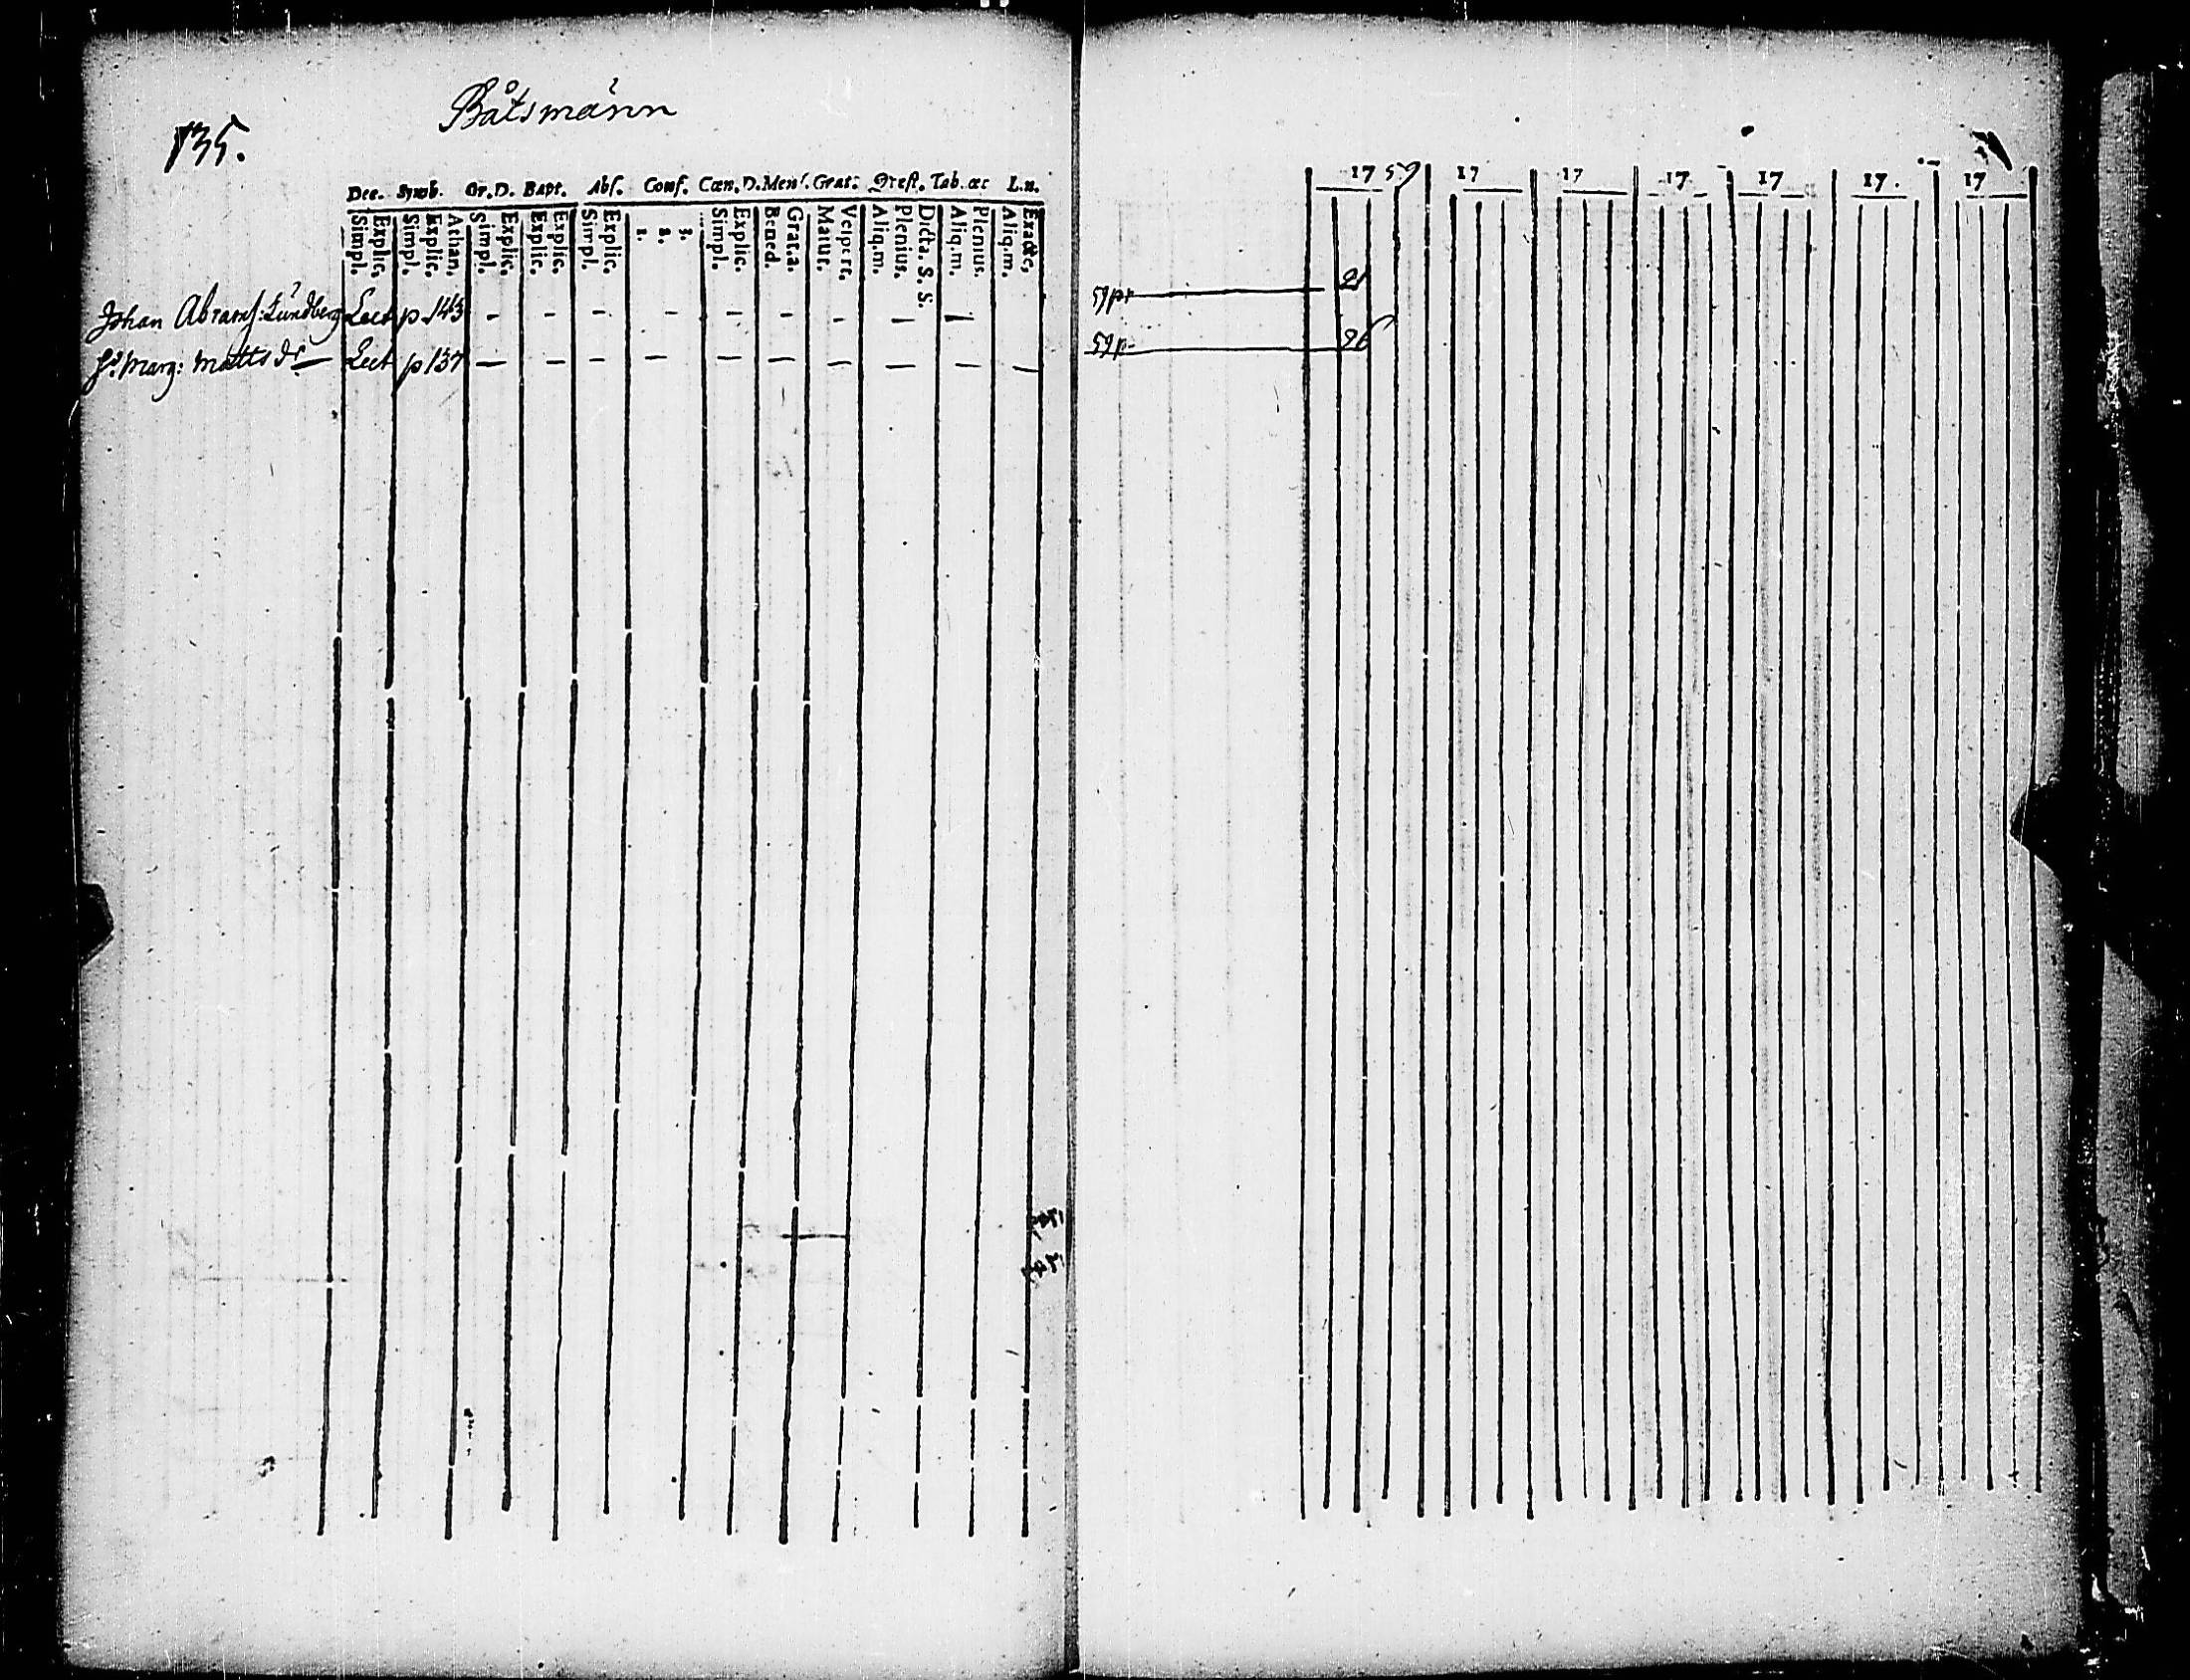 Båtsmänn
135.
Dec. Symb. Or.D. Bapt. Abs. Conf. Cœn.D. Mens. Grat: Qvest. Tab. œc L.n.
Simpl. Explic. Simpl. Explic. Athan. Simpl. Explic. Explic. Explic. Simpl. Explic. 1. 2. 3. Simpl. Explic. Bened. Grat.a. Matut. Vesp. Aliq.m. Plenius. Dicta. S. S. Aliq.m. Plenius. Aliq.m. Exacte.
Johan Abrams: Lundberg Lect p. 143 - - - - - - - - - -
Marg: Matts dr Lect p 137 - - - - - - - - - -
1759 17 17 17 17 17. 17
59 pr 21
59 p 26